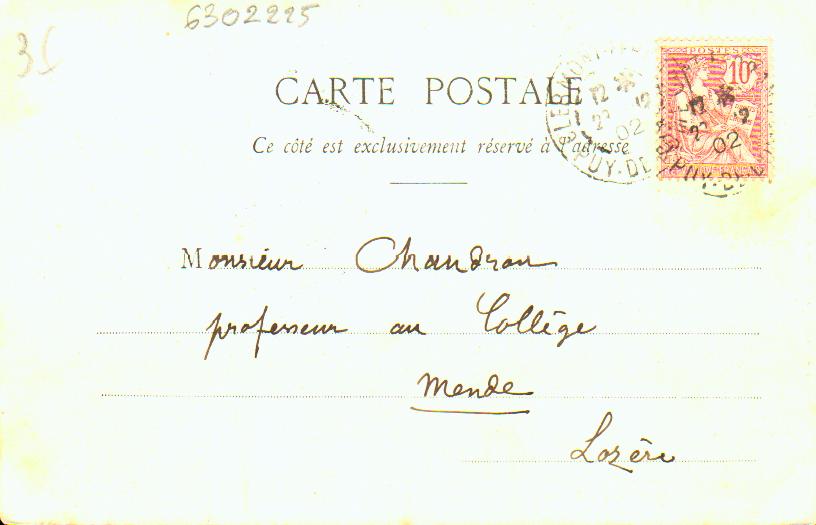 6302225
CARTE POSTALE
Ce côté est exclusivement réservé à l'adresse
POSTES
10
02
02
PUY-DE
Monsieur Chandron
professeur au Collège
Mende
Lozère